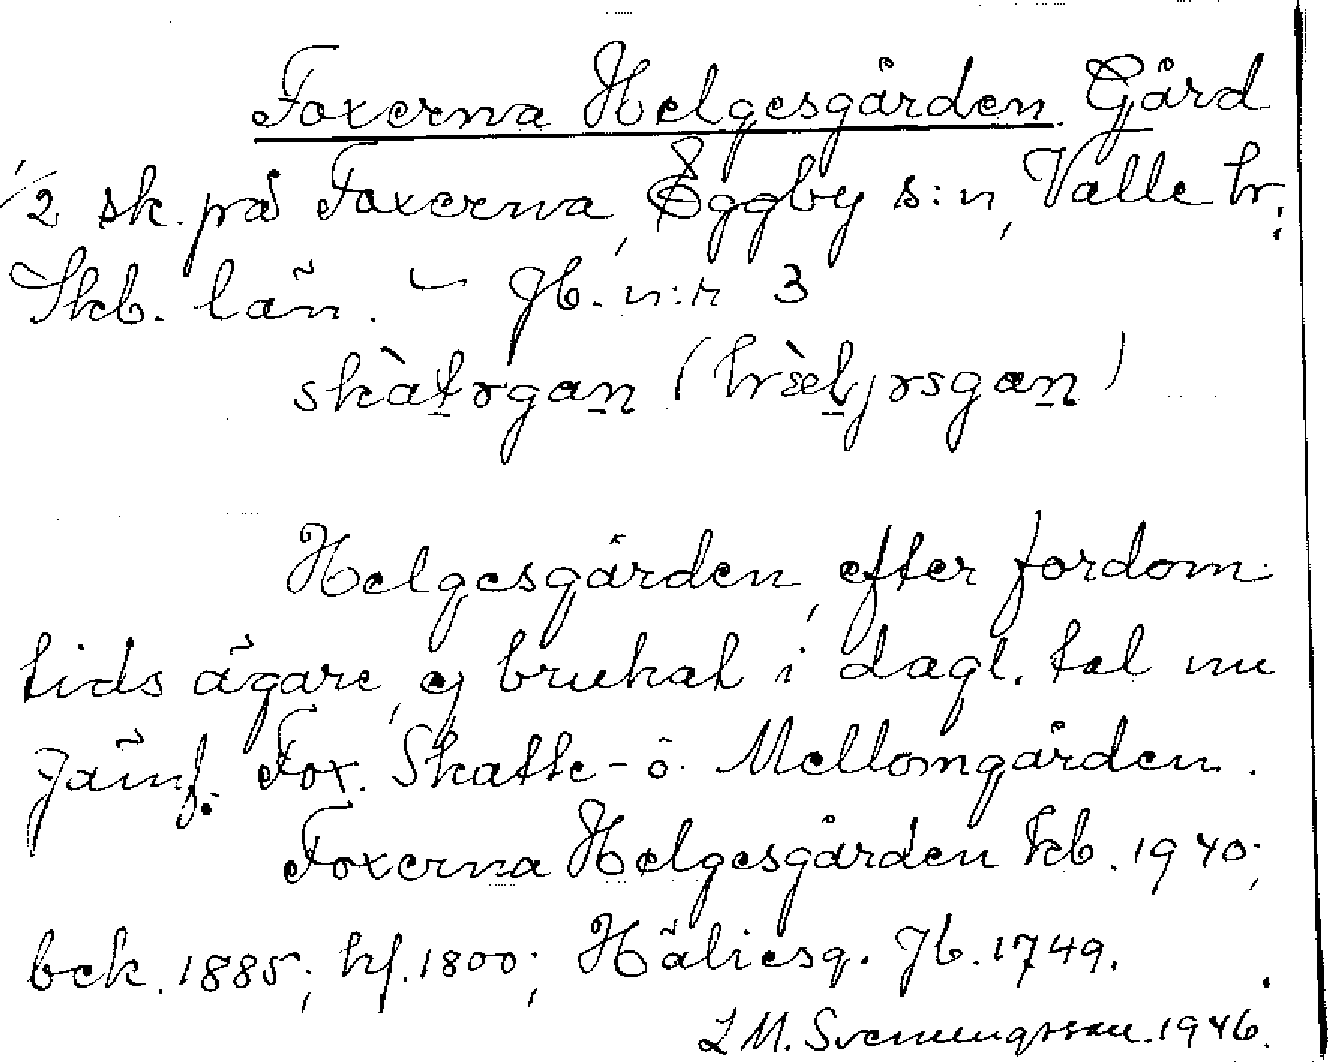 Foxerna Helgesgården. Gård
1/2 sk. på Foxerna, Eggby s:n, Valle hr;
Skb. län. – Jb. n:r 3
skàtərgan (hræ̀ljərsgan)
Helgesgården, efter fordom
tids ägare, ej brukat i dagl. tal nu
Jämf. Fox. Skatte- o. Mellomgården.
Foxerna Helgesgården kb. 1940;
bek. 1885; hf. 1800; Häliesg. Jb. 1749.
L M. Svenungsson. 1946.